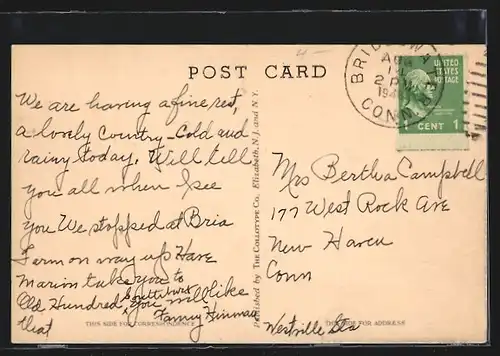 POST CARD
We are having a fine rest,
a lovely Country - Cold and
rainy today. Will tell
you all when I see
you We stopped at Bria
Farm on way up Have
Marion take you to
Old Hundred Southbury
you will like
that Fanny Hinman
THIS SIDE FOR CORRESPONDENCE
Published by THE COLLOTYPE CO. Elizabeth, N.J. and N.Y.
BRIDGEWA
AUG
2 PM
194
CONN.
UNITED STATES
POSTAGE
1 CENT 1
Mrs Bertha Campbell
177 West Rock Ave
New Haven
Conn
Westville Sta
THIS SIDE FOR ADDRESS